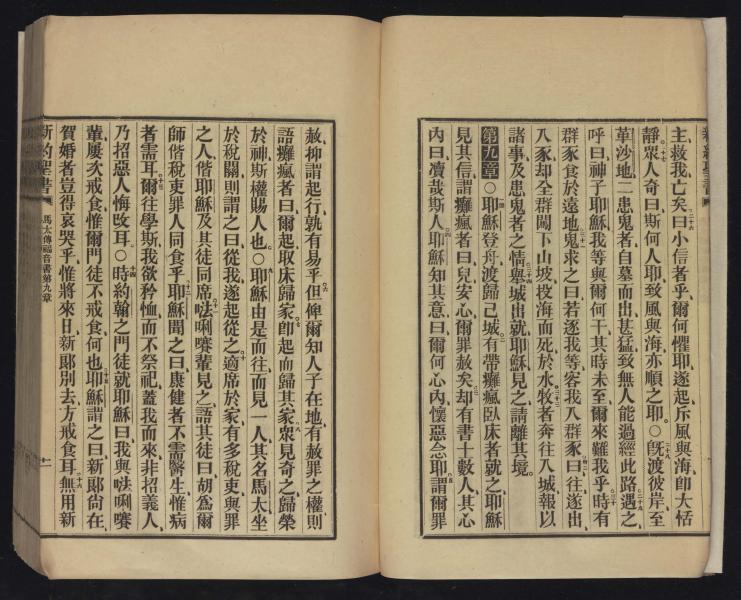 主救我亡矣曰小信者乎爾何懼耶遂起斥風與海卽大恬
靜眾人奇曰斯何人耶致風與海亦順之耶○既渡彼岸至
革沙地二患鬼者自墓而出甚猛致無人能過經此路遇之
呼曰神子耶穌我等與爾何干其時未至爾來難我乎時有
群豕食於遠地鬼求之曰若逐我等容我入群豕曰往遂出
入豕却全群闖下山坡投海而死於水牧者奔往入城報以
諸事及患鬼者之情舉城出就耶穌見之請離其境
第九章○耶穌登舟渡歸己城有帶癱瘋臥床者就之耶穌
見其信謂癱瘋者曰兒安心爾罪赦矣却有書士數人其心
內曰瀆哉斯人耶穌知其意曰爾何心內懷惡念卽謂爾罪
赦抑謂起行孰有易乎但俾爾知人子在地有赦罪之權則
語癱瘋者曰爾起取床歸家卽起而歸其家眾見奇之歸榮
於神斯權賜人也○耶穌由是而往而見一人其名馬太坐
於稅關則謂之曰從我遂起從之適席於家有多稅吏與罪
之人偕耶穌及其徒同席𠵽唎賽輩見之語其徒曰胡為爾
師偕稅吏罪人同食乎耶穌聞之曰康健者不需醫生惟病
者需耳爾往學斯我欲矜恤而不祭祀蓋我而來非招義人
乃招惡人悔改耳○時約翰之門徒就耶穌曰我與𠵽唎賽
輩屢次戒食惟爾門徒不戒食何也耶穌謂之曰新郎尙在
賀婚者豈得哀哭乎惟將來日新郎別去方戒食耳無用新
新約聖書
馬太傳福音書第九章
十一